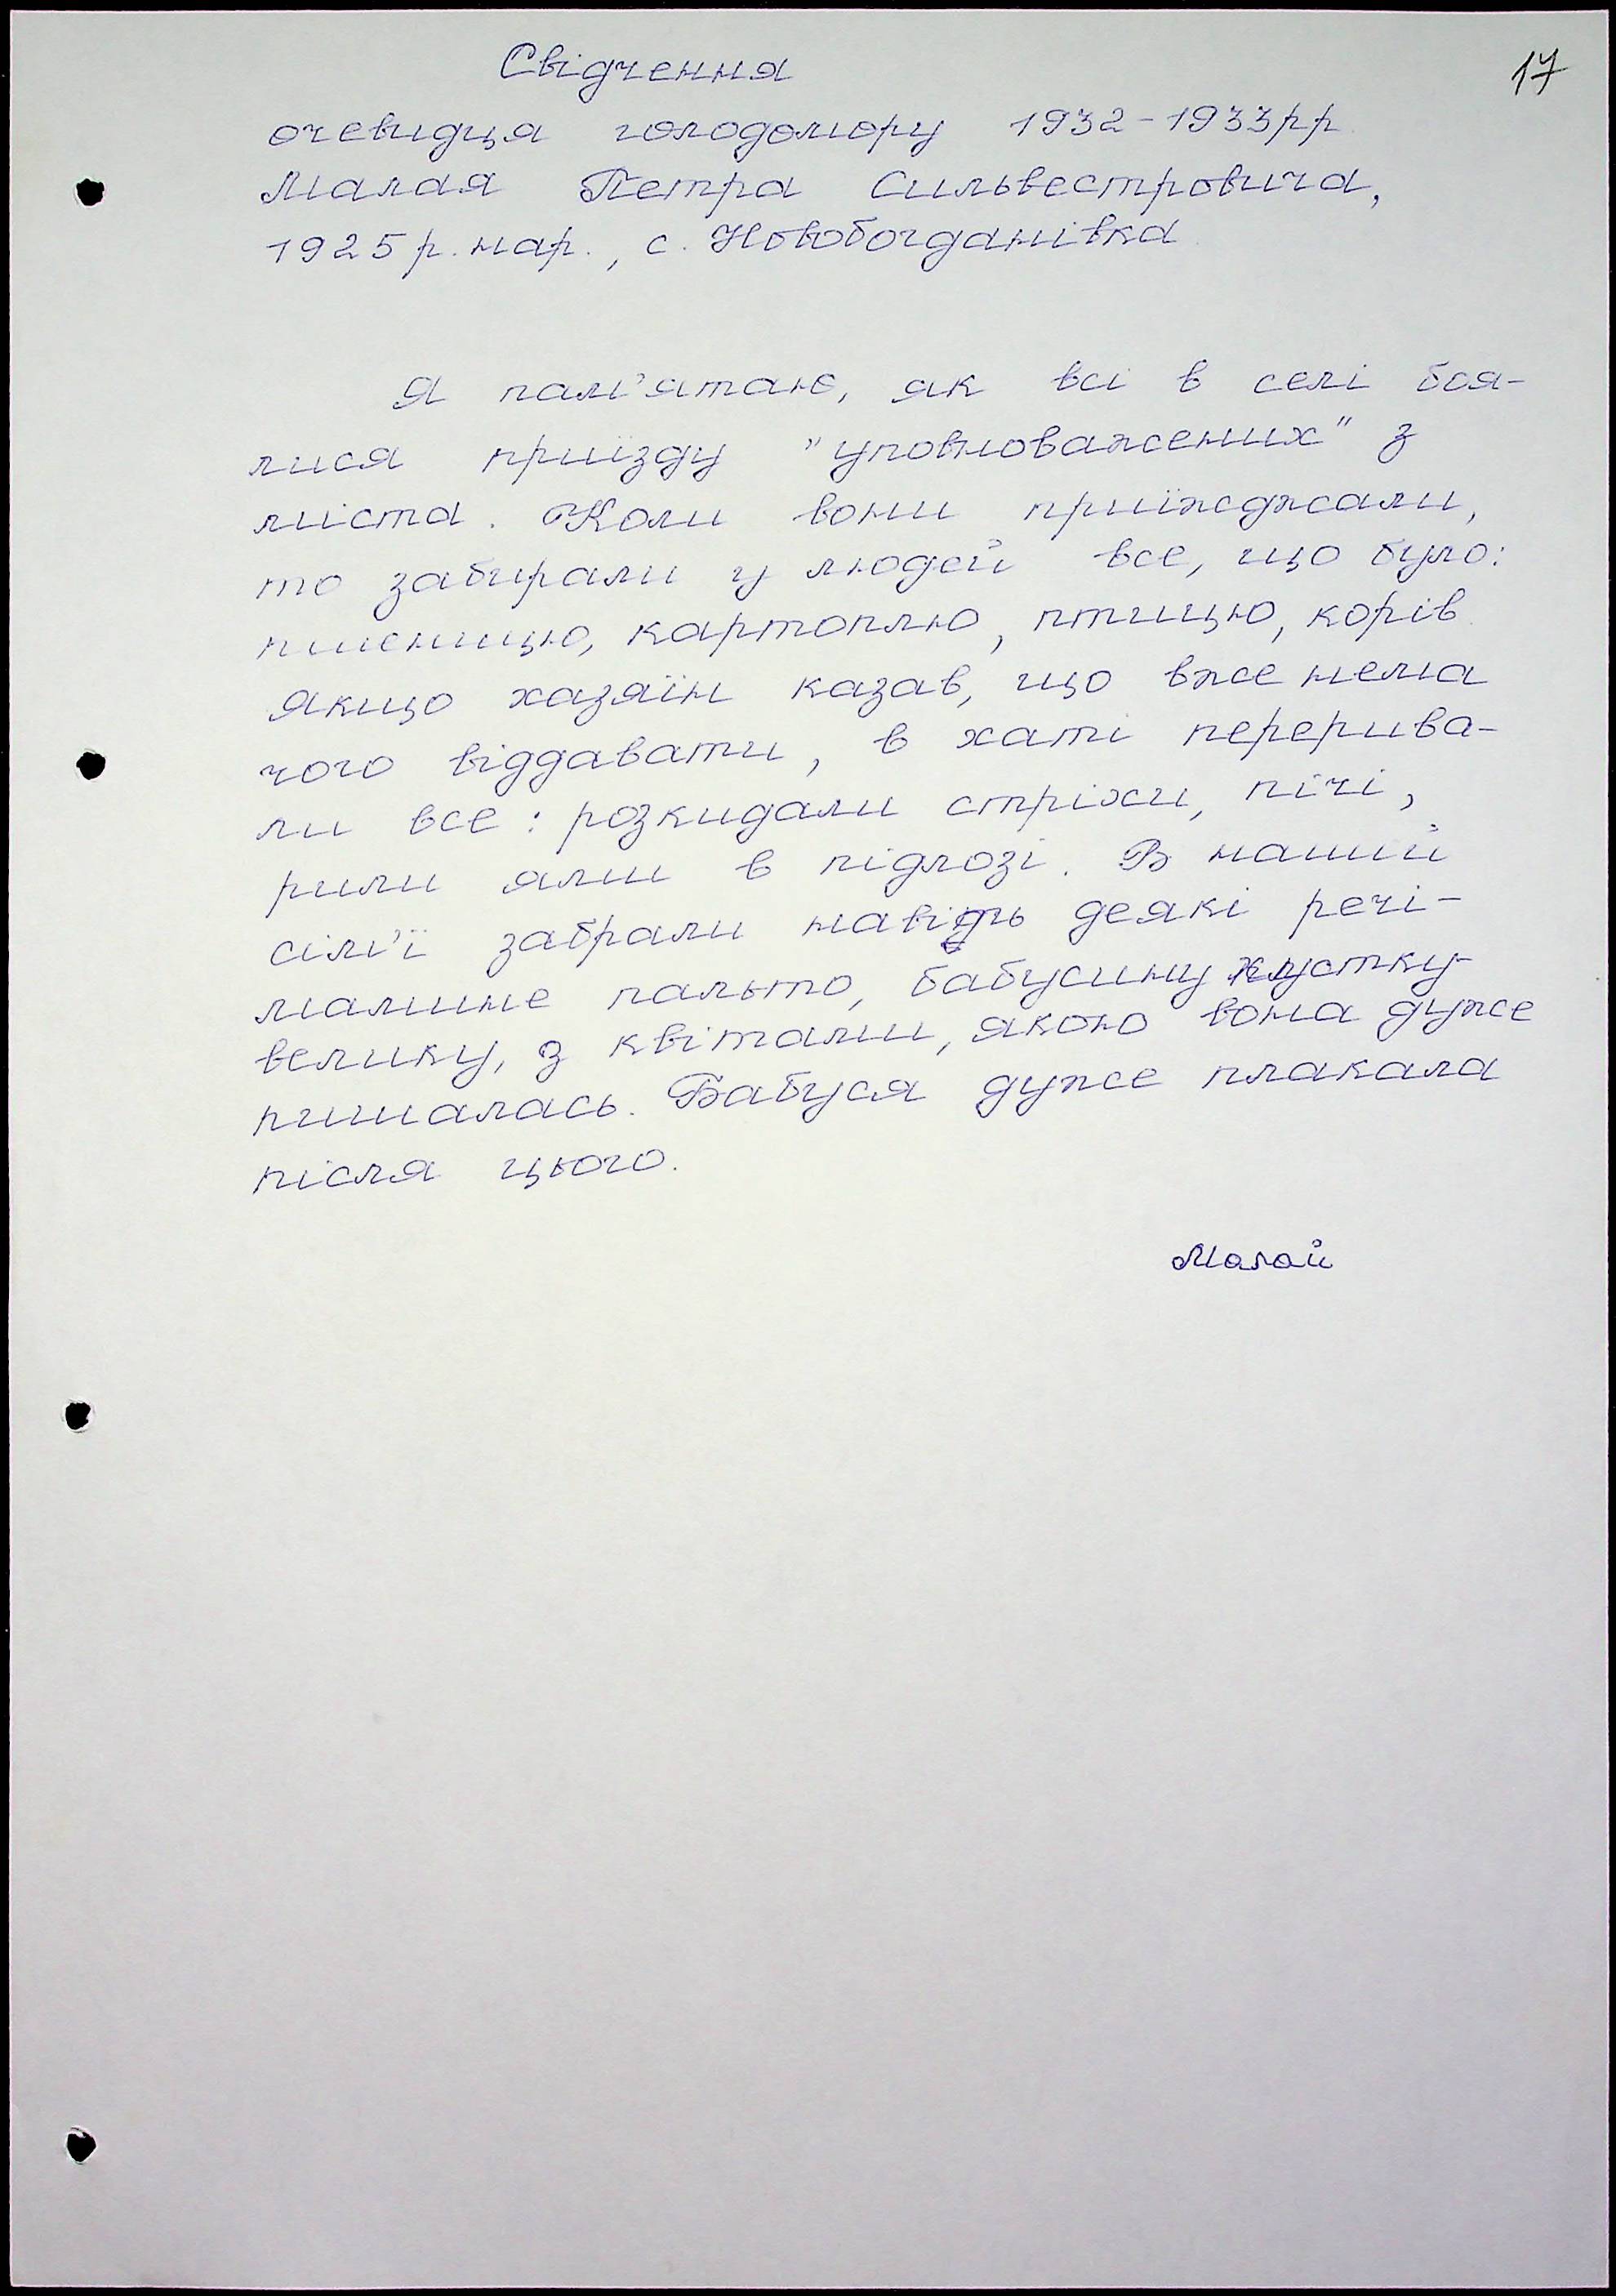 17
Свідчення
очевидця голодомору 1932-1933рр
Малая Петра Сильвестровича,
1925 р. нар., с. Новобогданівка
Я пам'ятаю, як всі в селі боя-
лися приїзду "уповноважених" з
міста. Коли вони приїжджали,
то забирали у людей все, що було:
пшеницю, картоплю, птицю, корів.
Якщо хазяїн казав, що вже нема
чого віддавати, в хаті перерива-
ли все: розкидали стріхи, печі,
рили ями в підлозі. В нашій
сім'ї забрали навідь деякі речі-
мамине пальто, бабусину хустку-
велику, з квітами, якою вона дуже
пишалась. Бабуся дуже плакала
після цього.
Малай